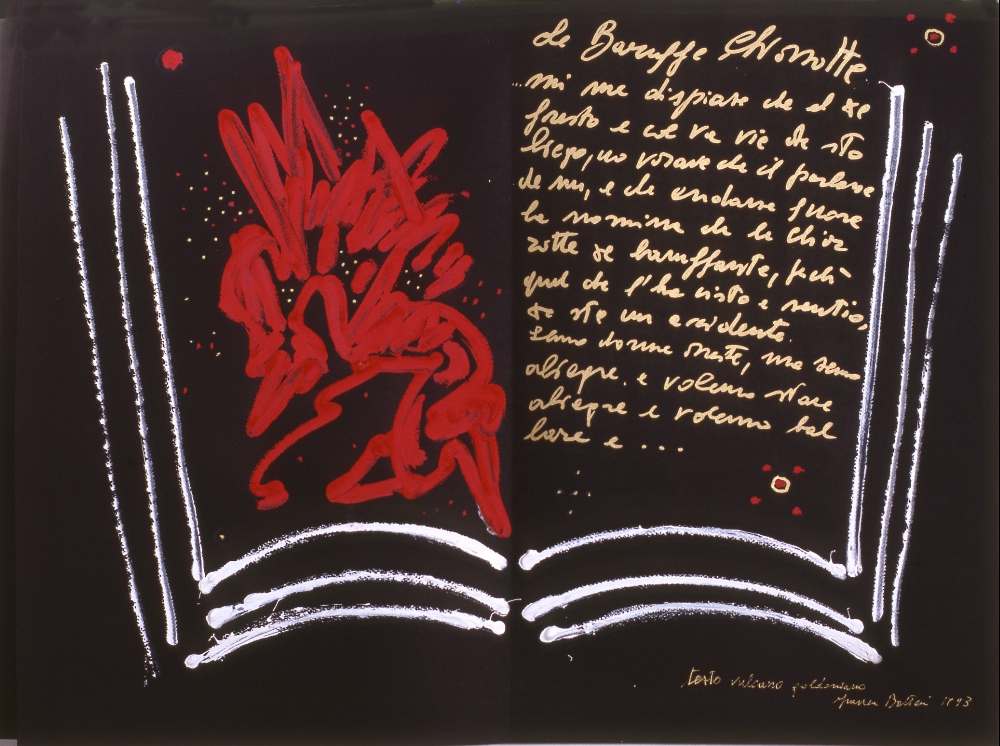 Le Baruffe Chiozzotte
...mi me dispiase che el xe
foresto e col va via de sto
liego, no vorave che il parlasse
de nu, e che andasse fuora
la nomina che le Chioz
zotte xe baruffante, perchè
quel che l'ha visto e sentio,
xe sta un acidente.
Semo donne oneste, ma semo
aliegre. e volemo stare
aliegre e volemo bal
lare e ...
testo vulcano goldoniano
1993